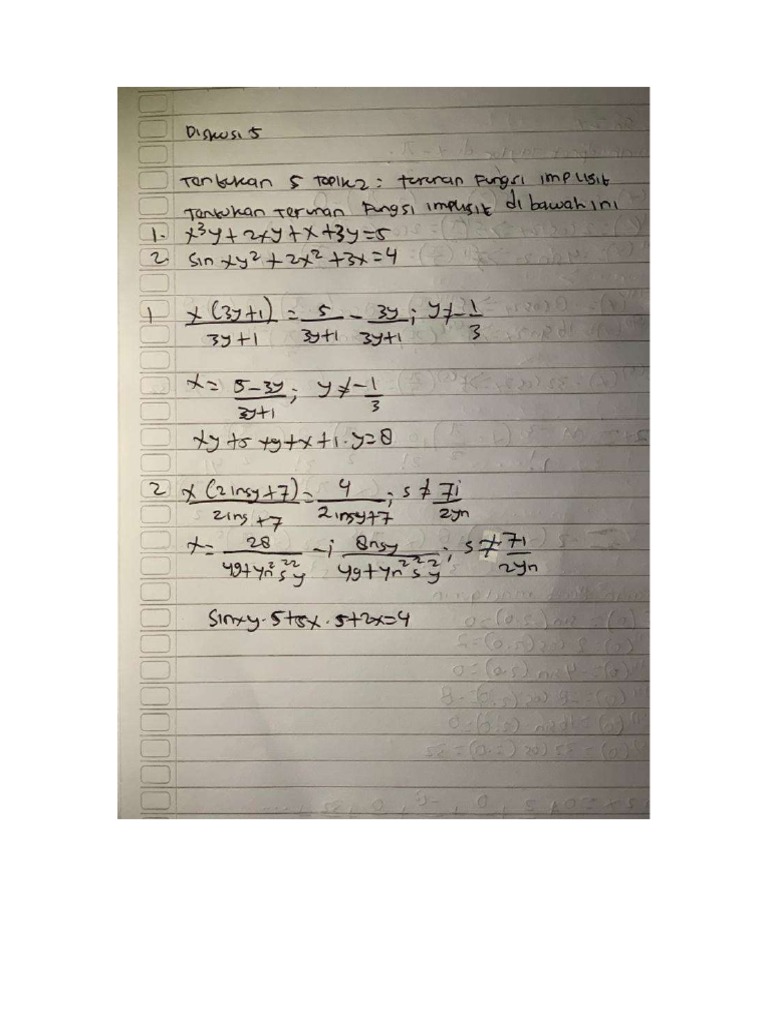 Diskusi 5
Tentukan 5 Topik 2 : turunan Fungsi implisit
Tentukan turunan Fungsi implisit di bawah ini
1. x³y + 2xy + x + 3y = 5
2 Sin xy² + 2x² + 3x = 4
1 x (3y+1) / 3y+1 = 5 / 3y+1 - 3y / 3y+1 ; y ≠ -1/3
x = 5-3y / 3y+1 ; y ≠ -1/3
xy + 5 xy + x + 1 . y = 8
2 x (2insy+7) / 2ins+7 = 4 / 2insy+7 ; s ≠ 7i / 2yn
x = 28 / 49+4n² s² y² - i 8nsy / 49+4n² s² y² ; s ≠ 7i / 2yn
Sinxy . 5 + 5x . 5 + 2x = 4